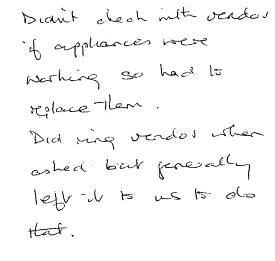 Didn't check with vendor
if appliances were
working so had to
replace them.
Did ring vendor when
asked but generally
left it to us to do
that.